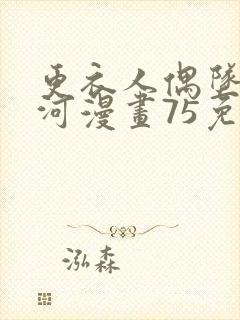 更衣人偶墜
河漫畫75免
泓森